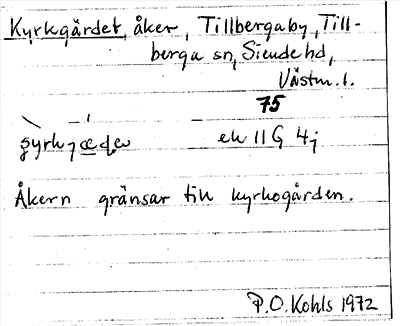 Kyrkgärdet, åker, Tillbergaby, Till-
berga sn, Siende hd,
Västm. l.
75
ek 11G 4j
Åkern gränsar till kyrkogården.
P.O. Kohls 1972